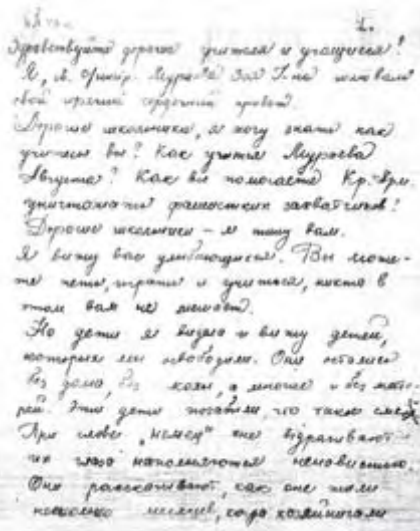 1.
Здравствуйте дорогие учителя и учащиеся!
Я, Мураева Зоя шлю вам
свой горячий сердечный привет.
Дорогие школьники, я хочу знать как
учитесь вы? Как учится Мураева
Августа? Как вы помогаете Кр. Арм.
уничтожать фашистских захватчиков?
Дорогие школьники – я пишу вам.
Я вижу вас улыбающихся. Вы може-
те петь, играть и учиться, никто в
этом вам не мешает.
Но дети я видела и вижу детей,
которых мы освободили. Они остались
без дома, без, а многие и без мате-
рей. Эти дети позабыли, что такое смех.
При слове „немец" они вздрагивают
их глаза наполняются ненавистью.
Они рассказывают, как они жили
несколько месяцев, когда хозяйничали